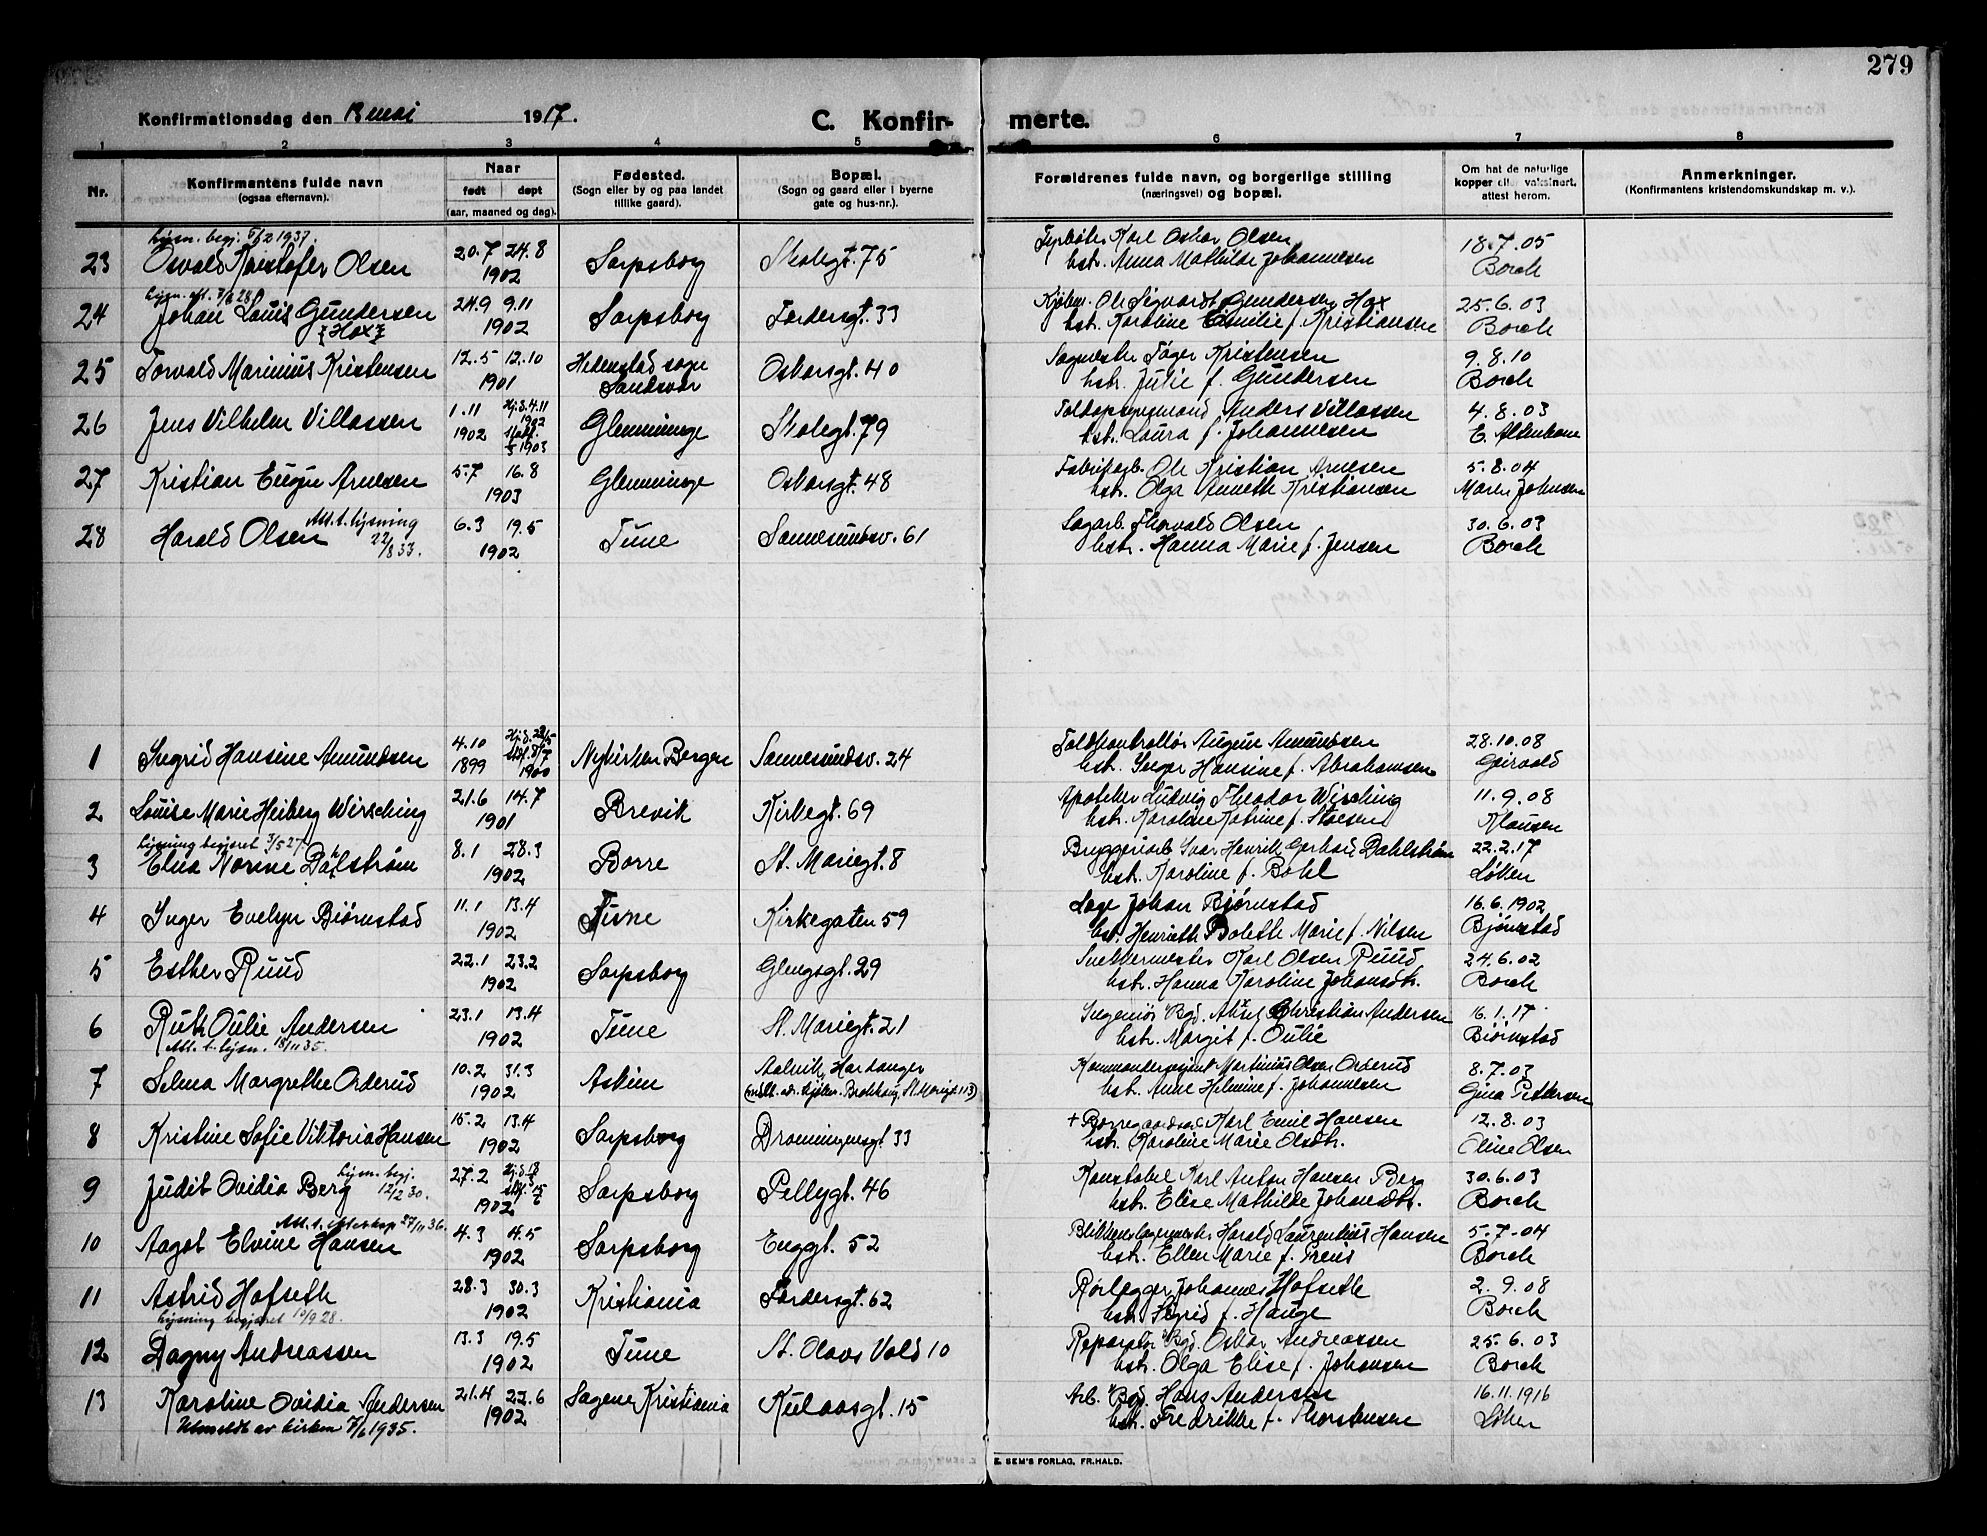 279
Konfirmationsdag den 13 mai 1917.
C. Konfir- merte.
1 2 3 4 5 6 7 8
Nr.
Konfirmantens fulde navn
(ogsaa efternavn).
Naar
født døpt
(aar, maaned og dag).
Fødested.
(Sogn eller by og paa landet
tillike gaard).
Bopæl.
(Sogn og gaard eller i byerne
gate og hus-nr.).
Forældrenes fulde navn, og borgerlige stilling
(næringsvei) og bopæl.
Om hat de naturlige
kopper eller vaksinert,
attest herom.
Anmerkninger.
(Konfirmantens kristendomskundskap m. v.).
lysn. begj. 5/2 1937.
23 Osvald Kristofer Olsen 20.7 24.8 1902 Sarpsborg Skolegt. 75 Karl Oskar Olsen 18.7.05
hstr. Anna Mathilde Johannesen Borch
24 Johan Louis Gundersen 24.9 9.11 1902 Sarpsborg Fordersgt. 33 Ole Sigvardt Gundersen Hox 25.6.03
{Hox} hstr. Karoline Emilie f. Kristiansen Borch
25 Torvald Marinius Kristensen 12.5 12.10 1901 Hedenstad sogn Oskarsgt. 40 Kristensen 9.8.10
Sandsvær hstr. Julie f. Gundersen Borch
26 Jens Vilhelm Villassen 1.11 1902 Hj.d. 4.11 1902 1903 Glemminge Skolegt. 79 Anders Villassen 4.8.03
hstr. Laura f. Johannesen
27 Kristian Eugen Arnesen 5.7 16.8 1903 Glemminge Oskarsgt. 48 Fabrikarb. Ole Kristian Arnesen 5.8.04
hstr. Olga Annette Kristiansen Maren Johnsen
28 Harald Olsen Att. t. lysning 22/8 33. 6.3 19.5 1902 Tune Sannesundsv. 61 Sagarb. Thorvald Olsen 30.6.03
hstr. Hanna Marie f. Jensen Borch
1 Ingrid Hansine Amundsen 4.10 1899 1900 Nykirken Bergen Sannesundsv. 24 Toldkontrollør August Amundsen 28.10.08
hstr. Inger Hansine f. Abrahamsen
2 Louise Marie Heiberg Wirsching 21.6 14.7 1901 Brevik Kirkegt. 69 Apotheker Ludvig Theodor Wisching 11.9.08
hstr. Karoline Katrine f. Klausen
lysning begjæret 3/5 27
3 Elna Norine Dahlstrøm 8.1 28.3 1902 Borre St. Mariegt. 8 Bryggeriarb. Ivar Henrik Gerhard Dahlstrøm 22.2.17
hstr. Karoline f. Bohl Løken
4 Inger Evelyn Bjørnstad 11.1 13.4 1902 Tune Kirkegaten 59 Læge Johan Bjørnstad 16.6.1902
hstr. Henriette Bolette Marie f. Nilsen Bjørnstad
5 Esther Ruud 22.1 23.2 1902 Sarpsborg Glengsgt. 29 Snekkermester Karl Olsen Ruud 24.6.02
hstr. Hanna Karoline Johansdtr. Borch
6 Ruth Oulie Andersen 23.1 13.4 1902 Tune St. Mariegt. 21 Ingeniør Bgd. Christian Andersen 16.1.17
Att. t. lysn. 18/11 35. hstr. Margit f. Oulie Bjørnstad
7 Selma Margrethe Orderud 10.2 31.3 1902 Askim Aalvik, Hardanger Martinius Olsen Orderud 8.7.03
hstr. Anne Helmine f. Johannesen Gina Pettersen
8 Kristine Sofie Viktoria Hansen 15.2 13.4 1902 Sarpsborg Dronningensgt. 33 + Karl Emil Hansen 12.8.03
hstr. Karoline Marie Olsdtr. Oline Olsen
9 Judit Ovidia Berg lysn. begj. 12/2 30. 27.2 1902 Sarpsborg Pellygt. 46 Konstabel Karl Anton Hansen Berg 30.6.03
hstr. Elise Mathilde Johansdtr. Borch
27/11 36.
10 Aagot Elvine Hansen 4.3 4.5 1902 Sarpsborg Enggt. 52 Blikkenslagermester Harald Laurentius Hansen 5.7.04
hstr. Ellen Marie f. Preus Borch
11 Astrid Hofseth 28.3 30.3 1902 Kristiania Fordersgt. 62 Rørlægger Johannes Hofseth 2.9.08
lysning begjæret 10/9 28. hstr. Sigrid f. Hauge Borch
12 Dagny Andreassen 13.3 19.5 1902 Tune St. Olavs Vold 10 Reparatør Bgd. Oskar Andreassen 25.6.03
hstr. Olga Elise f. Johansen Borch
13 Karoline Ovidia Andersen 21.4 22.6 1902 Sagene Kristiania Kulaasgt. 15 Arb. Bgd. Hans Andersen 16.11.1916
Utmeldt av kirken 7/6 1935. hstr. Fredrikke f. Thorstensen Løken
E. SEM'S FORLAG, FR.HALD.